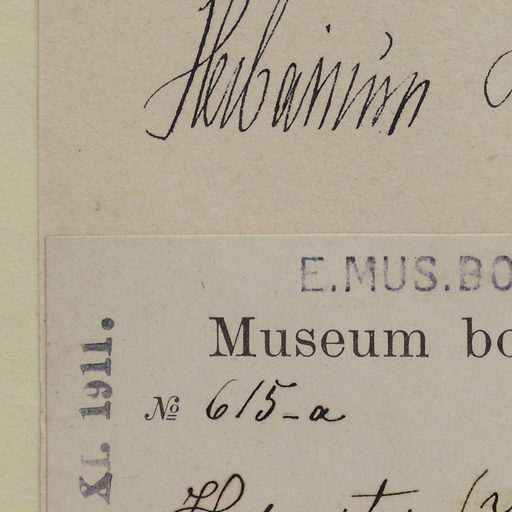 Herbarium
E.MUS.BO
Museum bo
№ 615-a
XI. 1911.